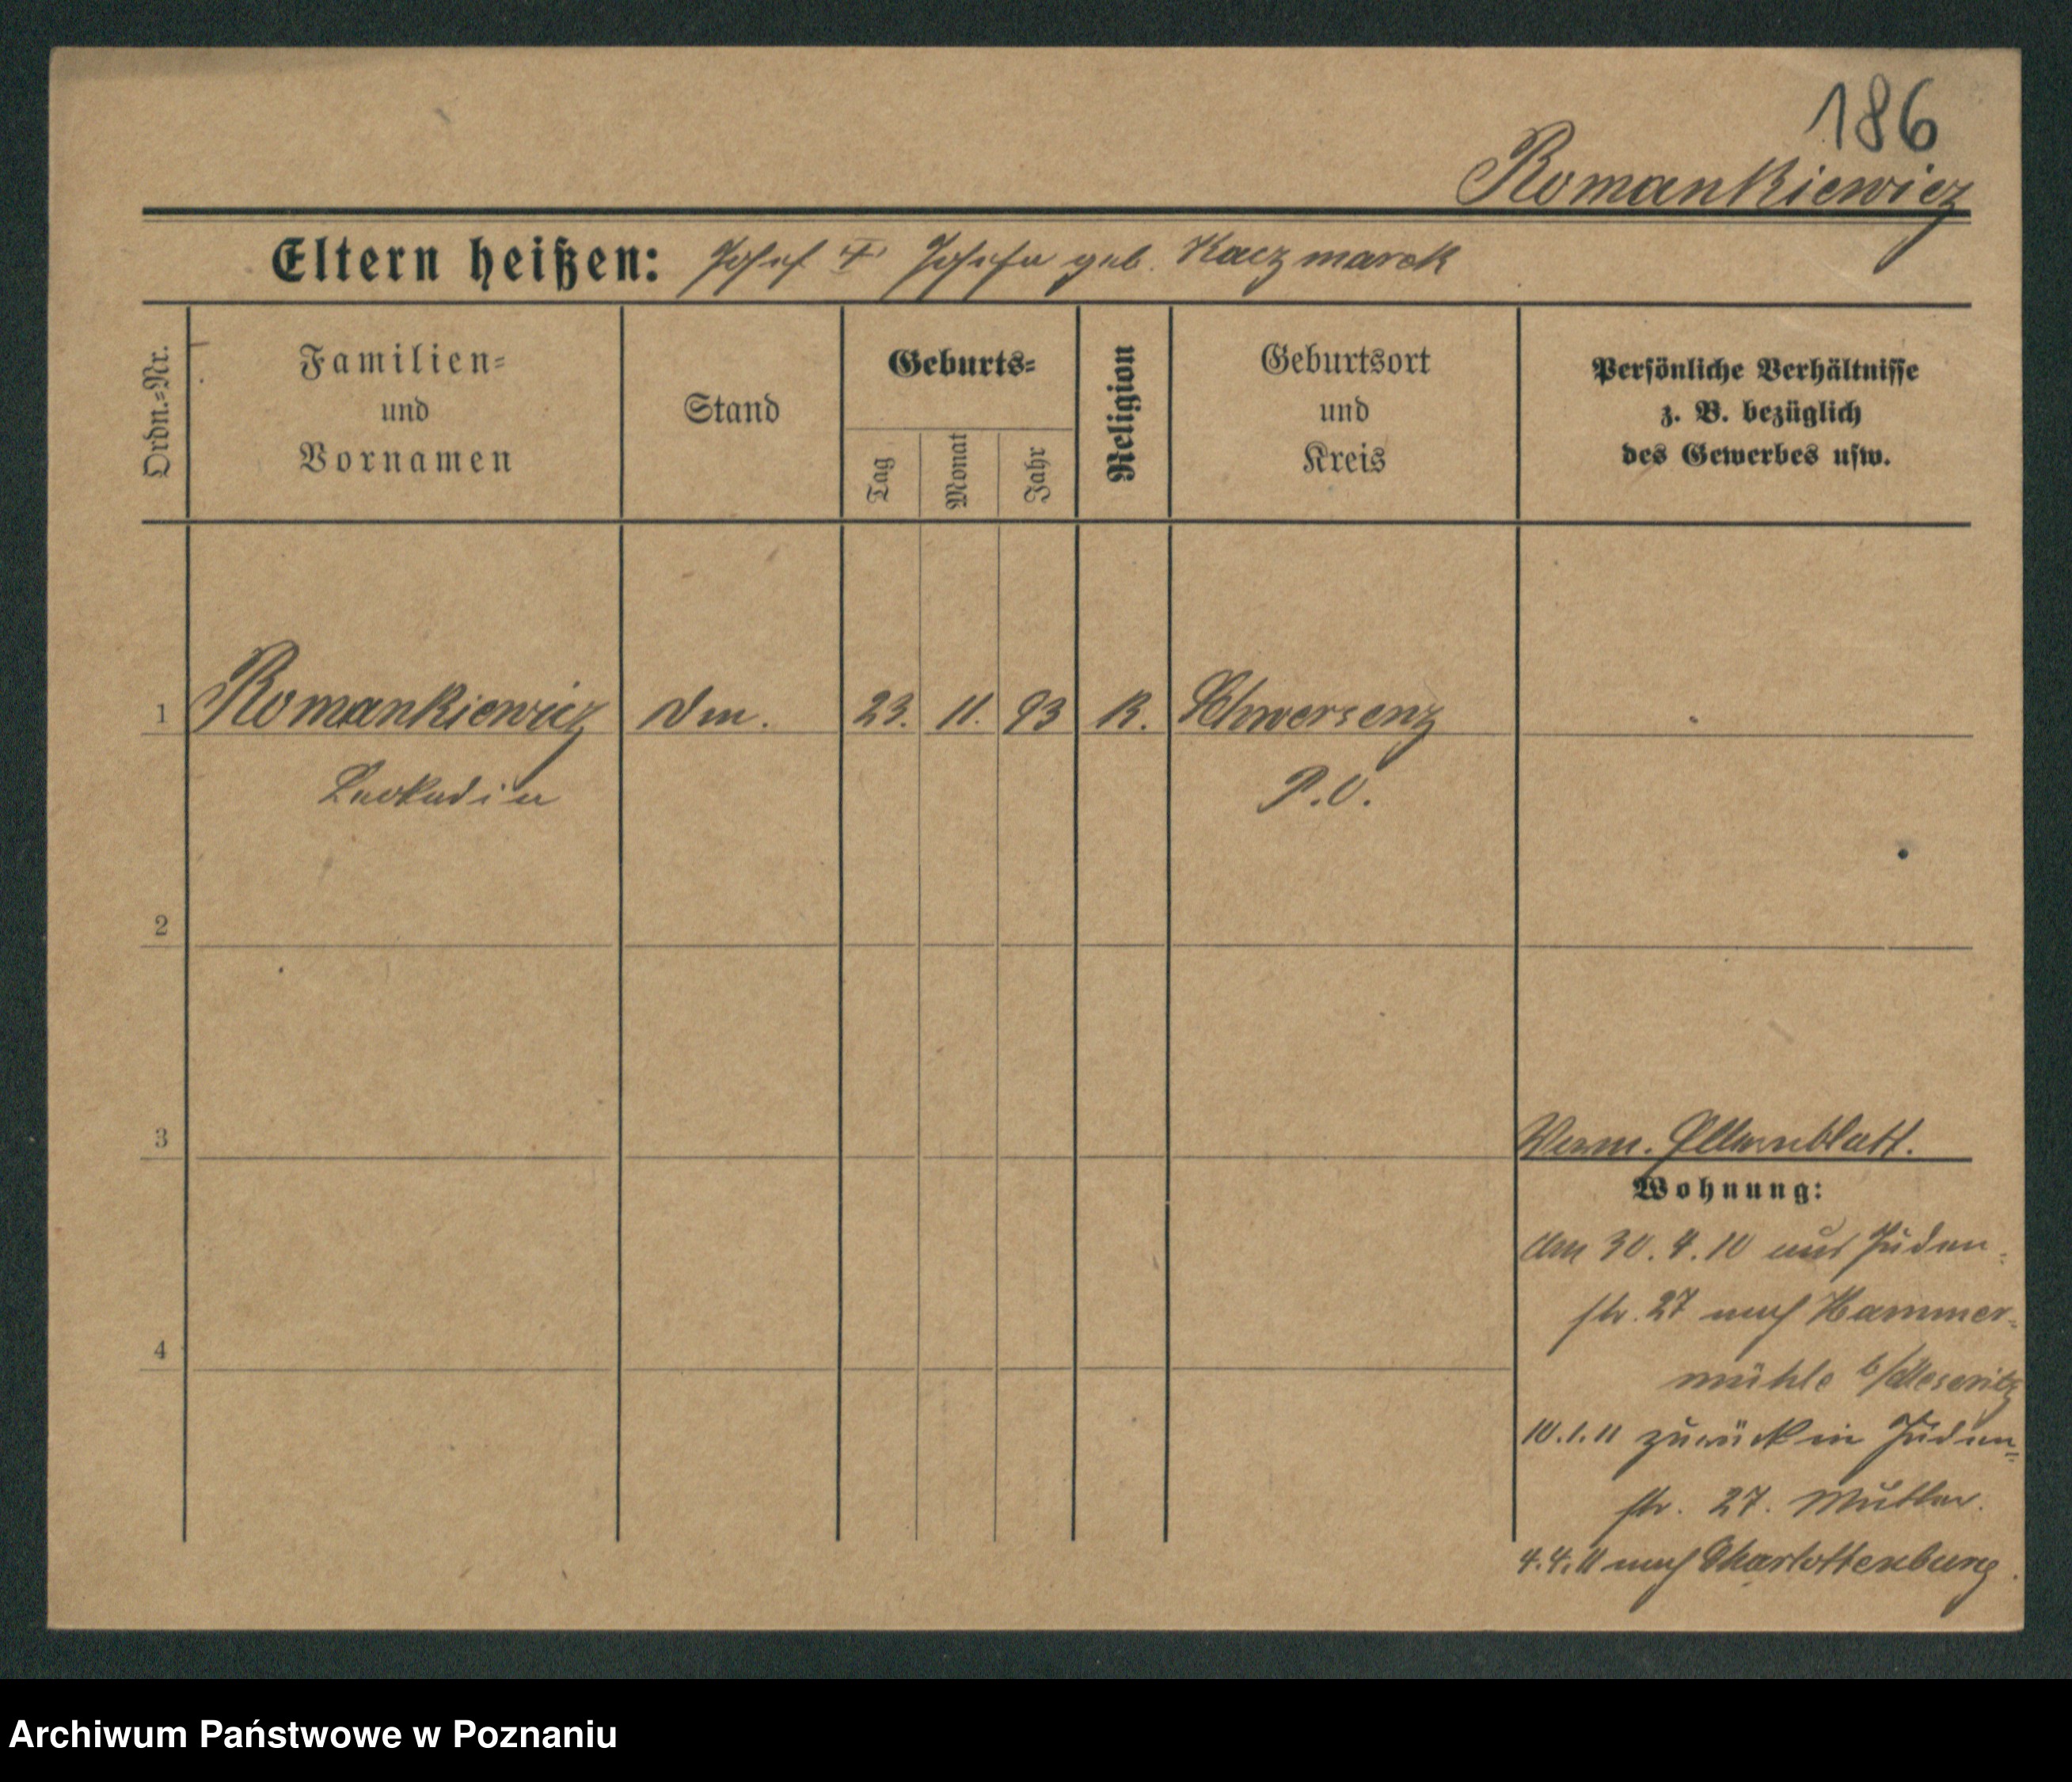 186
Romankiewicz
Eltern heißen: Josef † Josefa geb. Kaczmarek
Ordn.=Nr.
Familien=
und
Vornamen
Stand
Geburts=
Tag
Monat
Jahr
Religion
Geburtsort
und
Kreis
Persönliche Verhältnisse
z. B. bezüglich
des Gewerbes usw.
1 Romankiewicz 23. 11. 93 K. Schwersenz
Leokadia P.O.
2
3
Verm. Elternblatt.
Wohnung:
4
Am 30.4.10 aus Juden-
str. 27 nach Hammer-
mühle b/Meseritz
10.1.11 zurück in Juden-
str. 27. Mutter.
4.4.11 nach Charlottenburg.
Archiwum Państwowe w Poznaniu